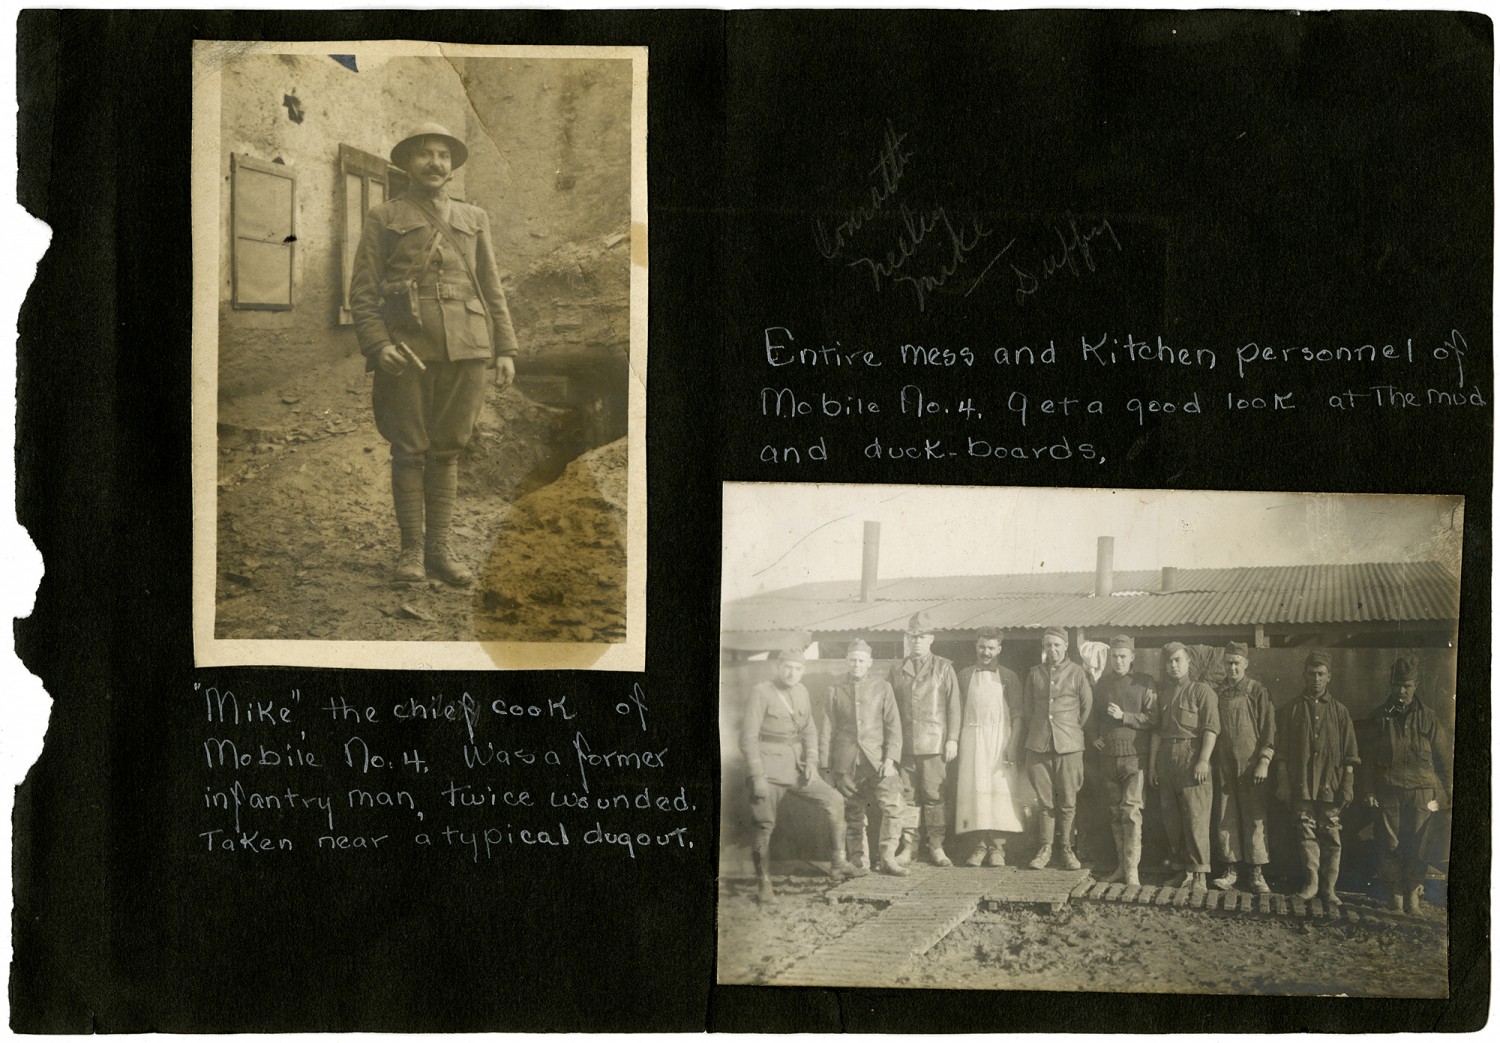 "Mike", the chief cook of
Mobile No. 4. Was a former
infantry man, twice wounded.
Taken near a typical dugout.
Conrath
Neeley
Mike — Duffy
Entire mess and Kitchen personnel of
Mobile No. 4. Get a good look at The mud
and duck-boards.